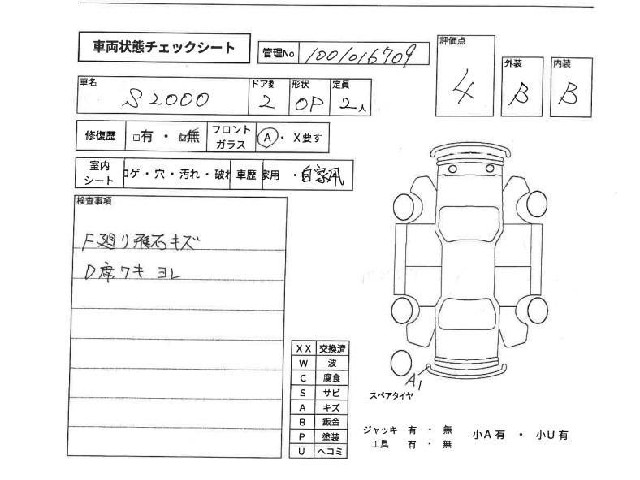 車両状態チェックシート
管理No 1001016709
評価点 4
外装 B
内装 B
車名 S2000
ドア数 2
形状 OP
定員 2人
修復歴 □有・☑無
フロントガラス Ⓐ・X要す
室内シート コゲ・穴・汚れ・破れ
車歴 家用・自家汎
検査事項
F廻り飛石キズ
D席ワキ ヨレ
XX 交換済
W 波
C 腐食
S サビ
A キズ
B 鈑金
P 塗装
U ヘコミ
A1
スペアタイヤ
ジャッキ 有・無
工具 有・無
小A有・小U有